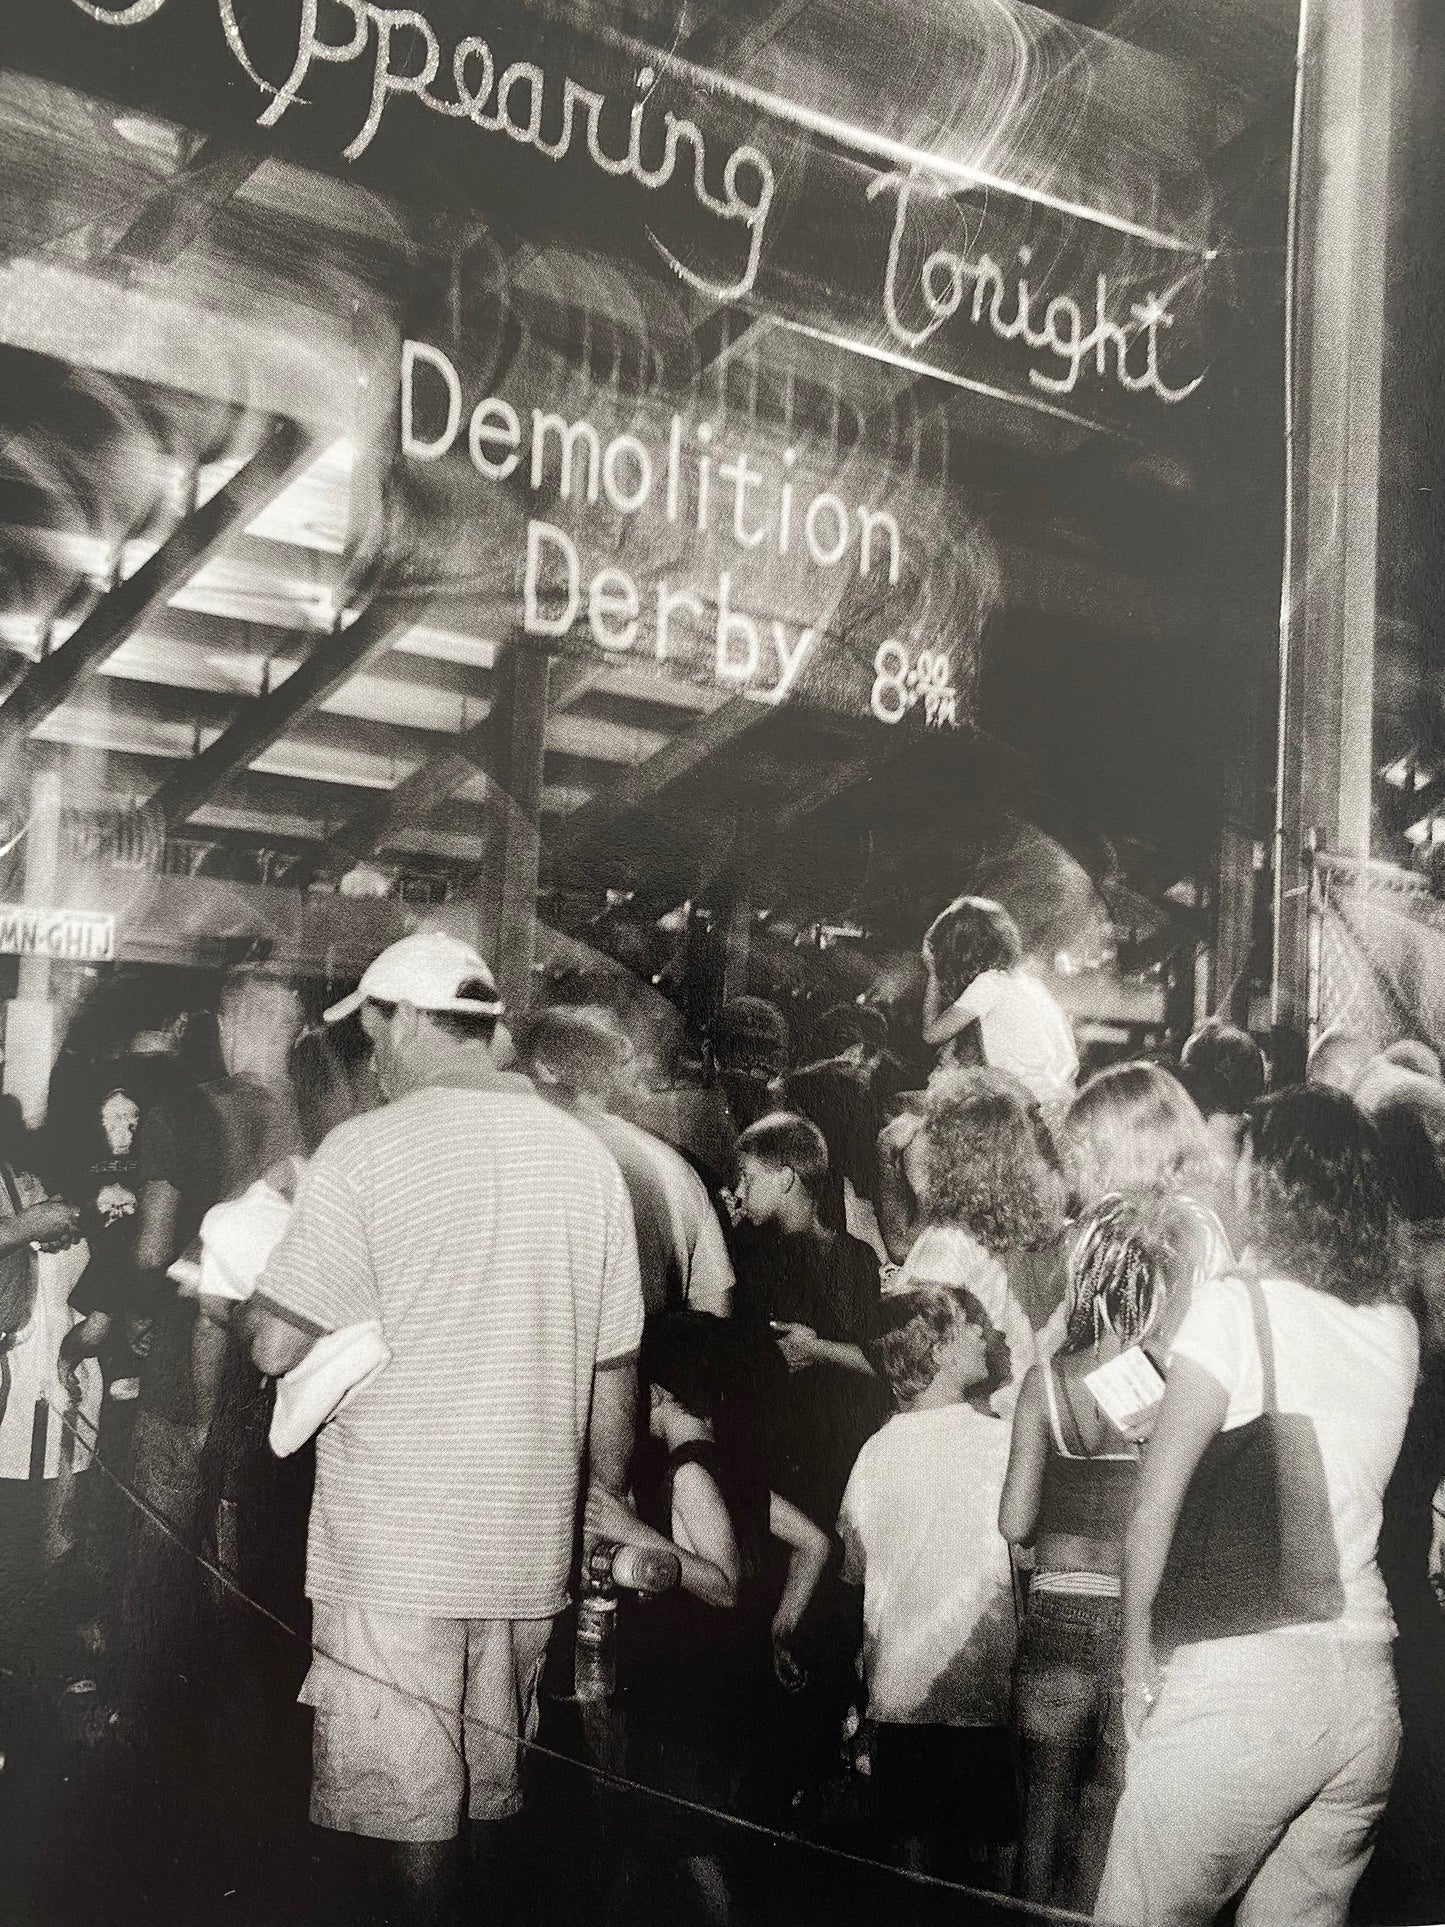 Appearing Tonight
Demolition
Derby 8:00
P.M
MN-GHIJ